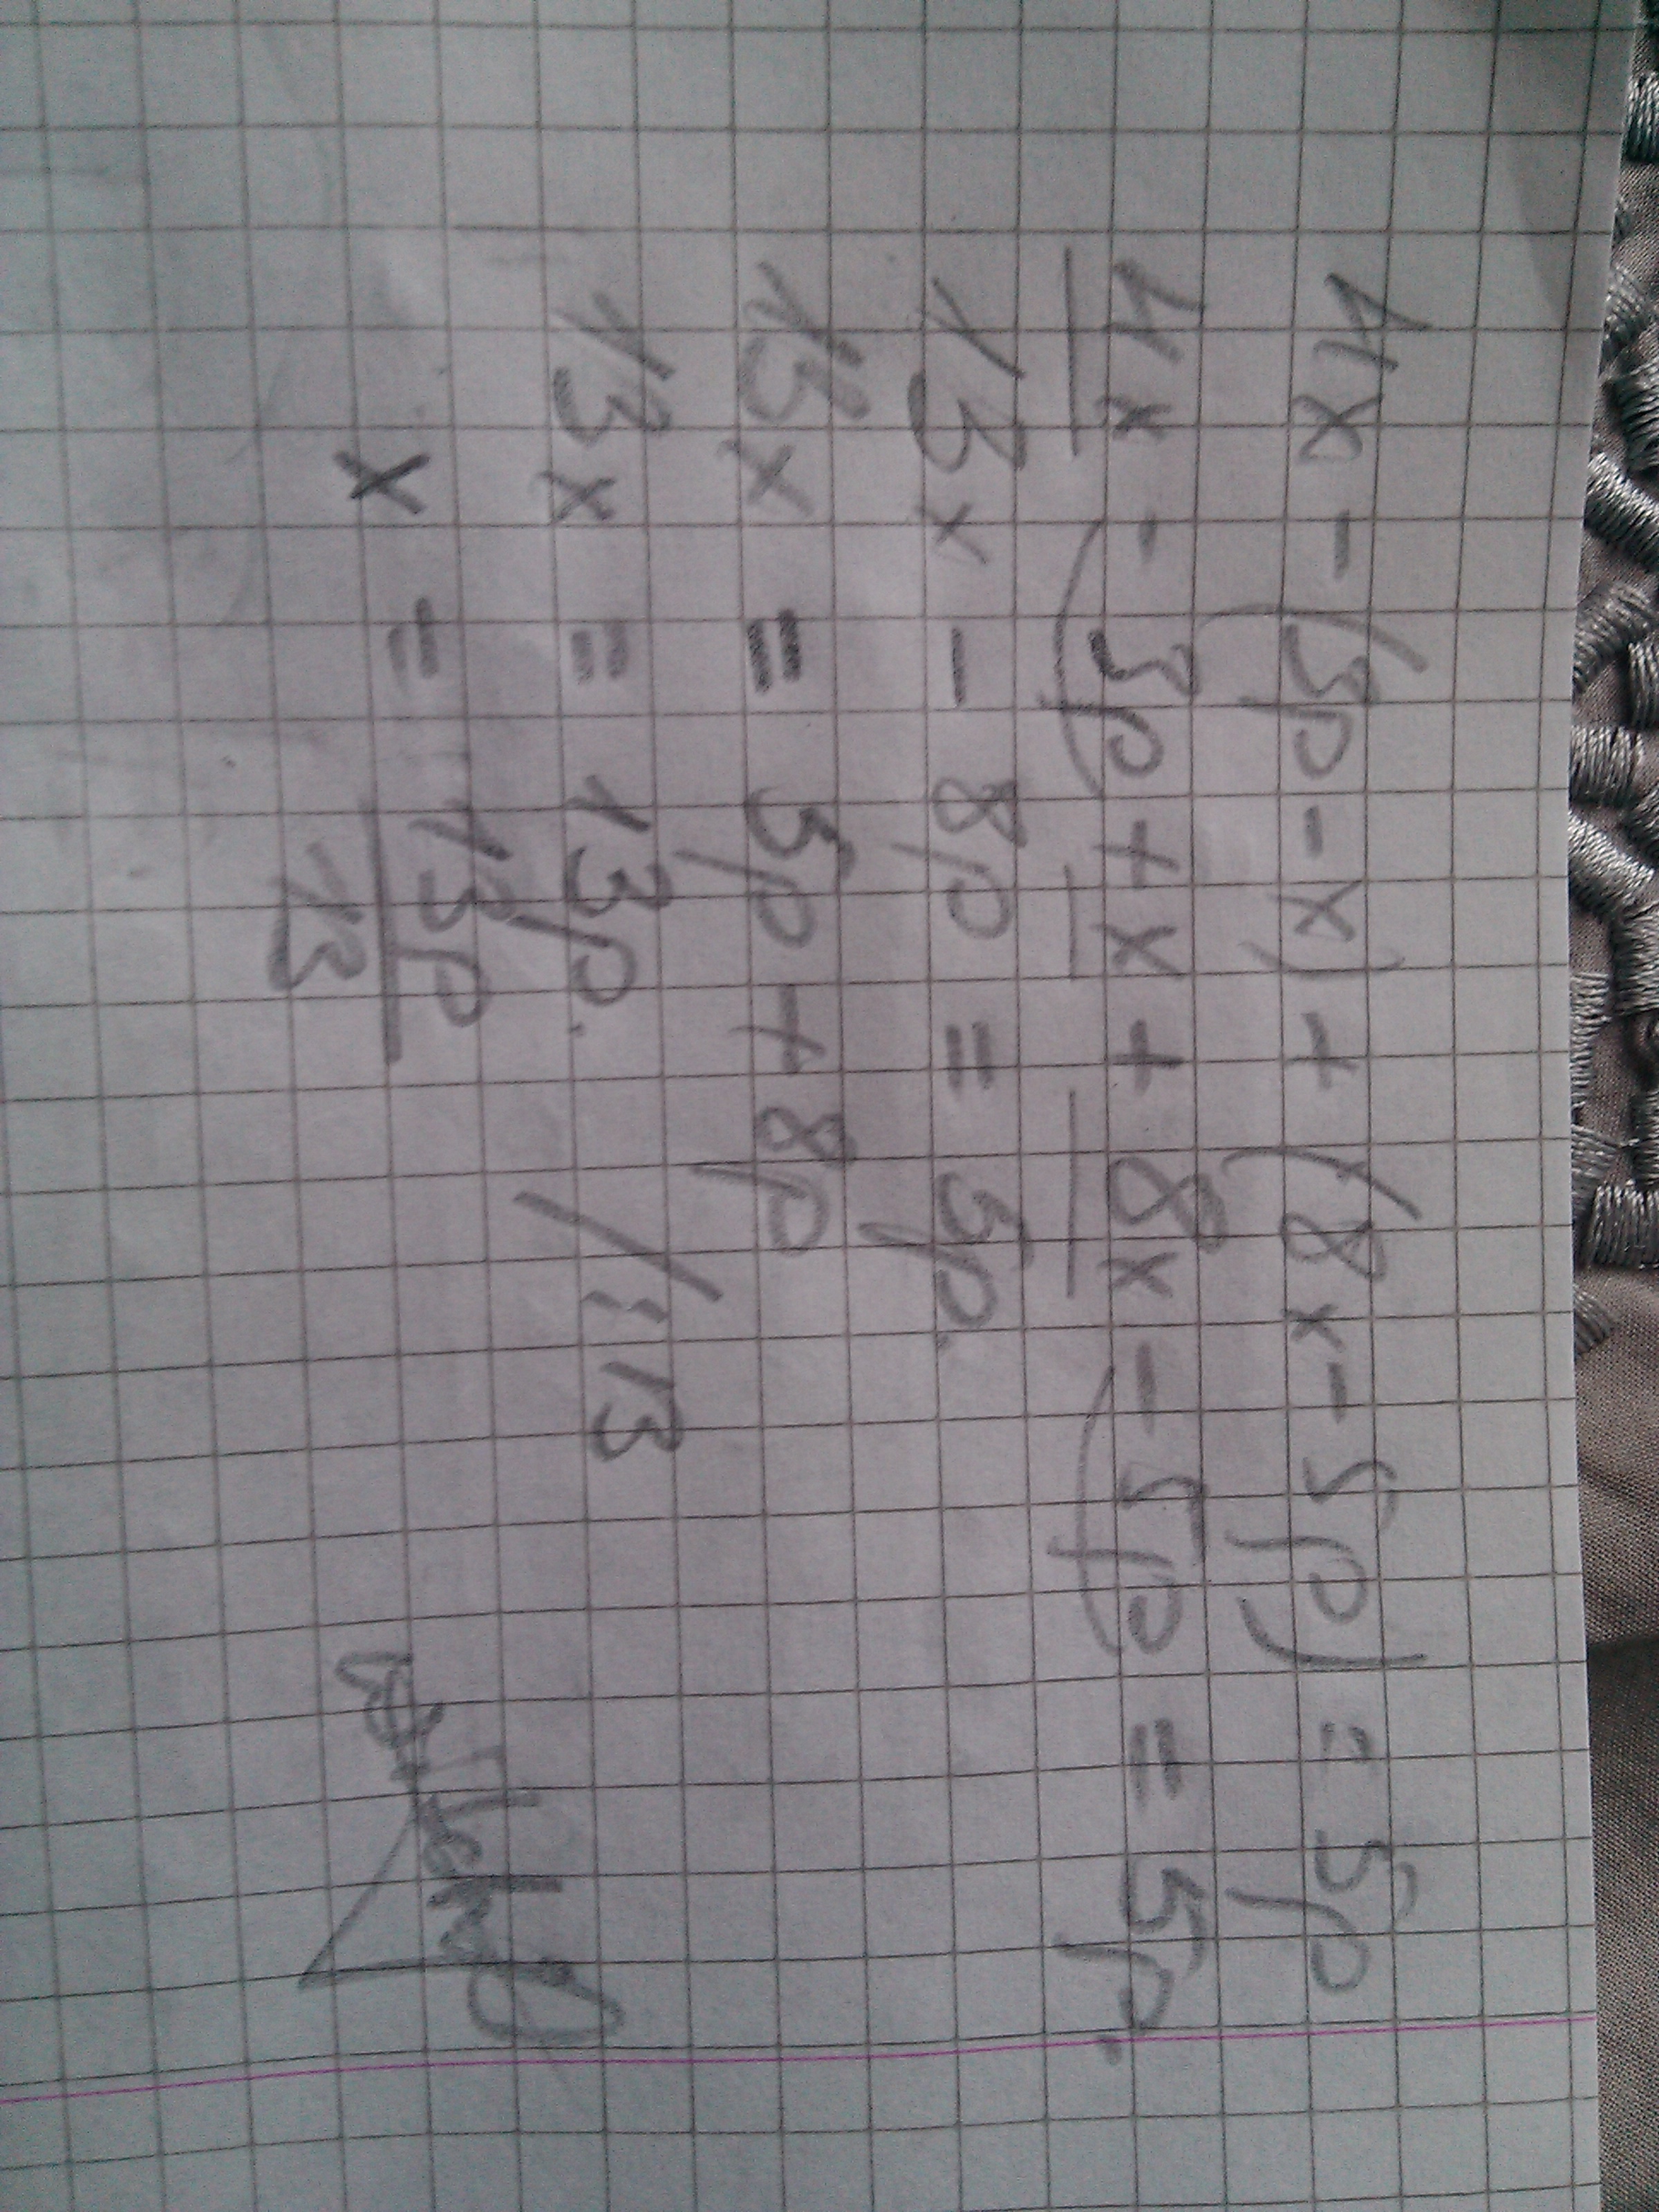 4x - (3p - x) + (8x - 5p) = 5p
4x - 3p + x + 8x - 5p = 5p.
13x - 8p = 5p.
13x = 5p + 8p
13x = 13p. /:13
x = 13p/13